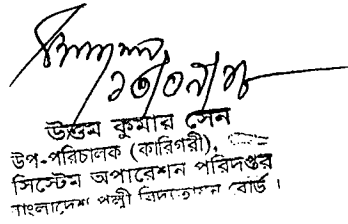 উত্তম কুমার সেন
উপ-পরিচালক (কারিগরী),
সিস্টেম অপারেশন পরিদপ্তর
বাংলাদেশ পল্লী বিদ্যুতায়ন বোর্ড।